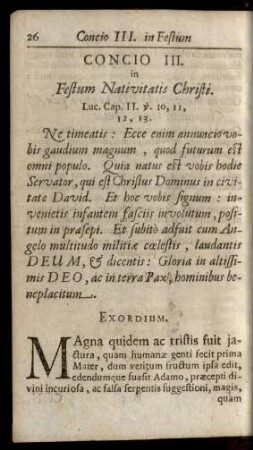 26 Concio III. in Festum
CONCIO III.
in
Festum Nativitatis Christi.
Luc. Cap. II. ꝟ. 10, 11,
12, 13.
Ne timeatis: Ecce enim annuncio vo-
bis gaudium magnum, quod futurum est
omni populo. Quia natus est vobis hodie
Servator, qui est Christus Dominus in civi-
tate David. Et hoc vobis signum: in-
venietis infantem fasciis involutum, posi-
tum in præsepi. Et subitò adfuit cum An-
gelo multitudo militiæ cœlestis, laudantis
DEUM, & dicentis: Gloria in altissi-
mis DEO, ac in terra Pax, hominibus be-
neplacitum.
EXORDIUM.
MAgna quidem ac tristis fuit ja-
ctura, quam humanæ genti fecit prima
Mater, dum vetitum fructum ipsa edit,
edendumque suasit Adamo, præcepti di-
vini incuriosa, ac falsa serpentis suggestioni, magis,
quàm